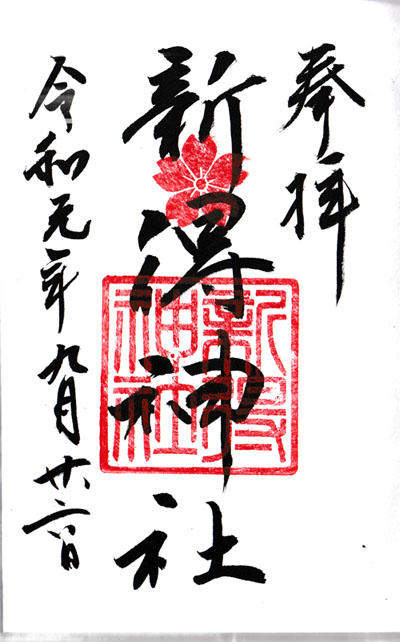 奉拝
新得神社
新得神社
令和元年九月廿二日